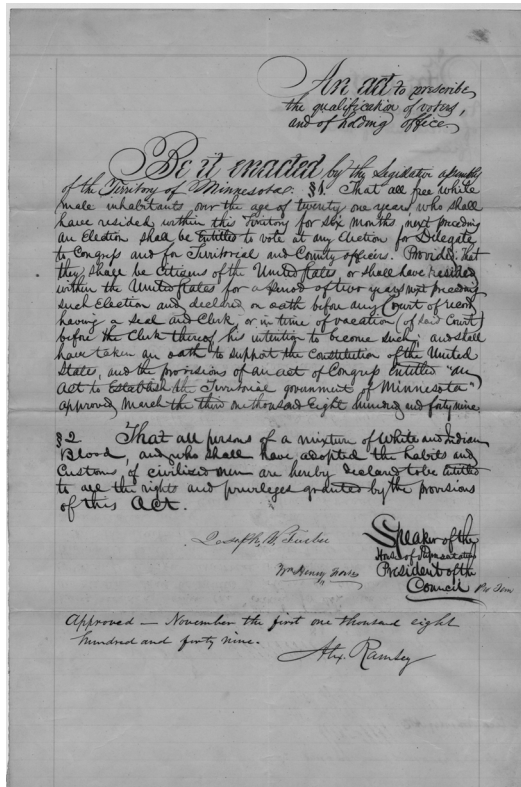 An act to prescribe
the qualification of voters,
and of holding office,
Be it enacted by the Legislative assembly
of the Territory of Minnesota: §1. That all free white
male inhabitants over the age of twenty one years who shall
have resided within this Territory for six months, next preceding
an Election shall be Entitled to vote at any Election for Delegate
to Congress and for Territorial and County officers. Provided; that
they shall be citizens of the United States, or shall have resided
within the United States for a period of two years next preceding
such Election and declared on oath before any Court of record
having a seal and Clerk, or in time of vacation (of said Court)
before the Clerk thereof his intention to become such; and shall
have taken an oath to support the Constitution of the United
States, and the provisions of an act of Congress Entitled "an
Act to Establish the Territorial government of Minnesota"
approved March the third one thousand Eight hundred and forty nine
§2 That all persons of a mixture of White and Indian
Blood, and who shall have adopted the habits and
Customs of civilized men are hereby declared to be Entitled
to all the rights and privileges granted by the provisions
of this Act.
Joseph W. Furber
Speaker of the
House of Representatives
Wm Henry Forbes
President of the
Council Pro Tem
Approved — November the first one thousand eight
hundred and forty nine.
Alex. Ramsey